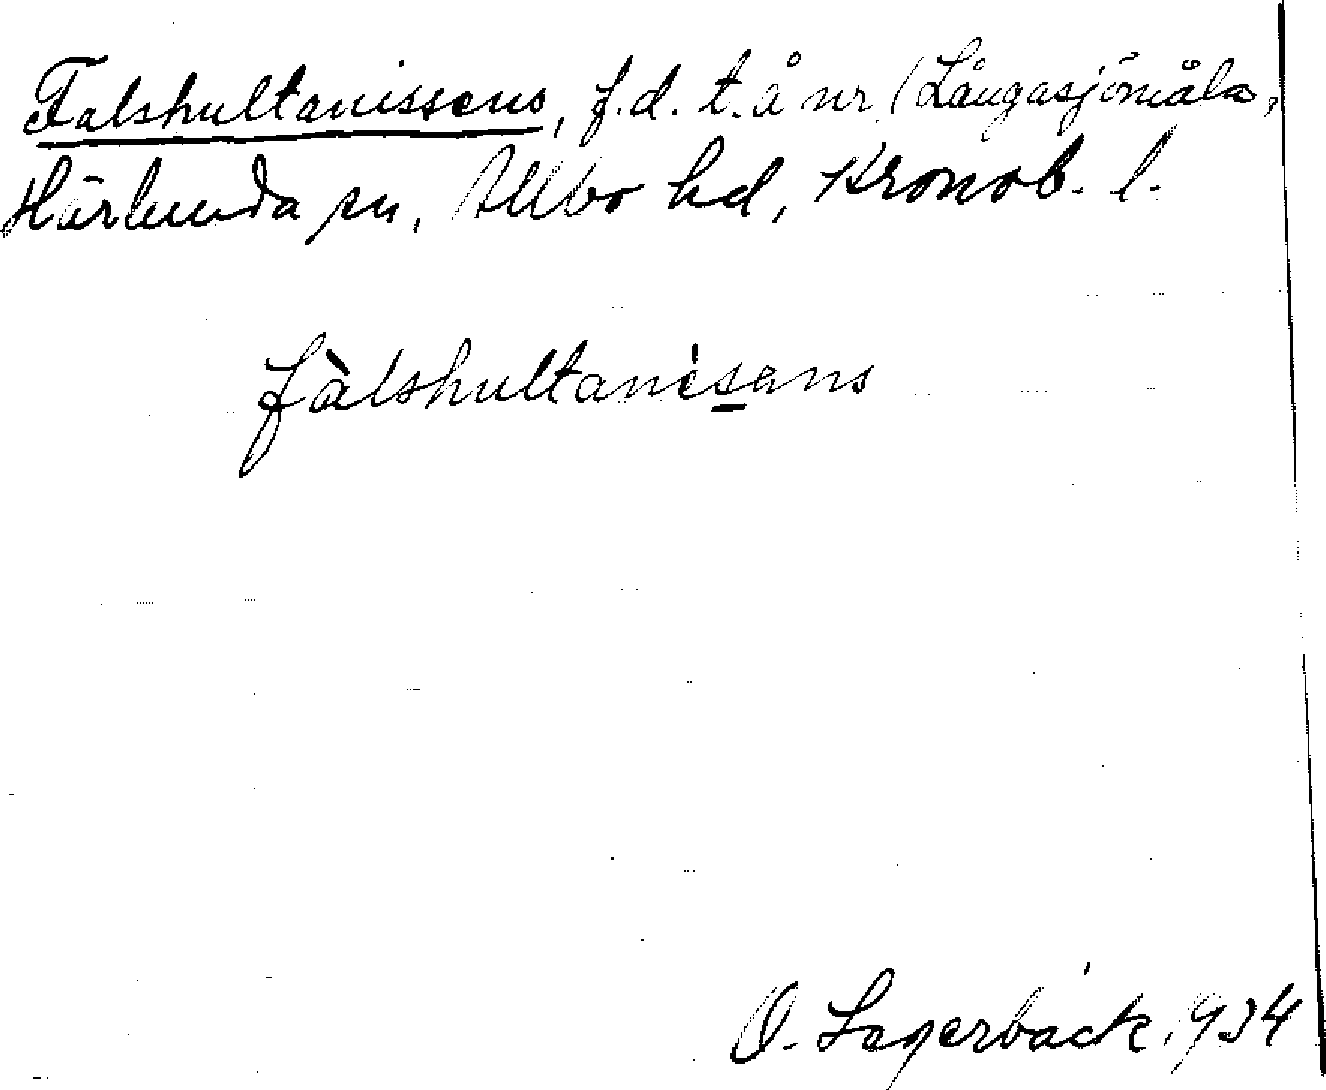 Falshultanissens, f.d. t. å nr 1 Långasjömåla,
Härlunda sn, Allbo hd, Kronob. l.
fàlshultanisens
O. Lagerbäck. 1934